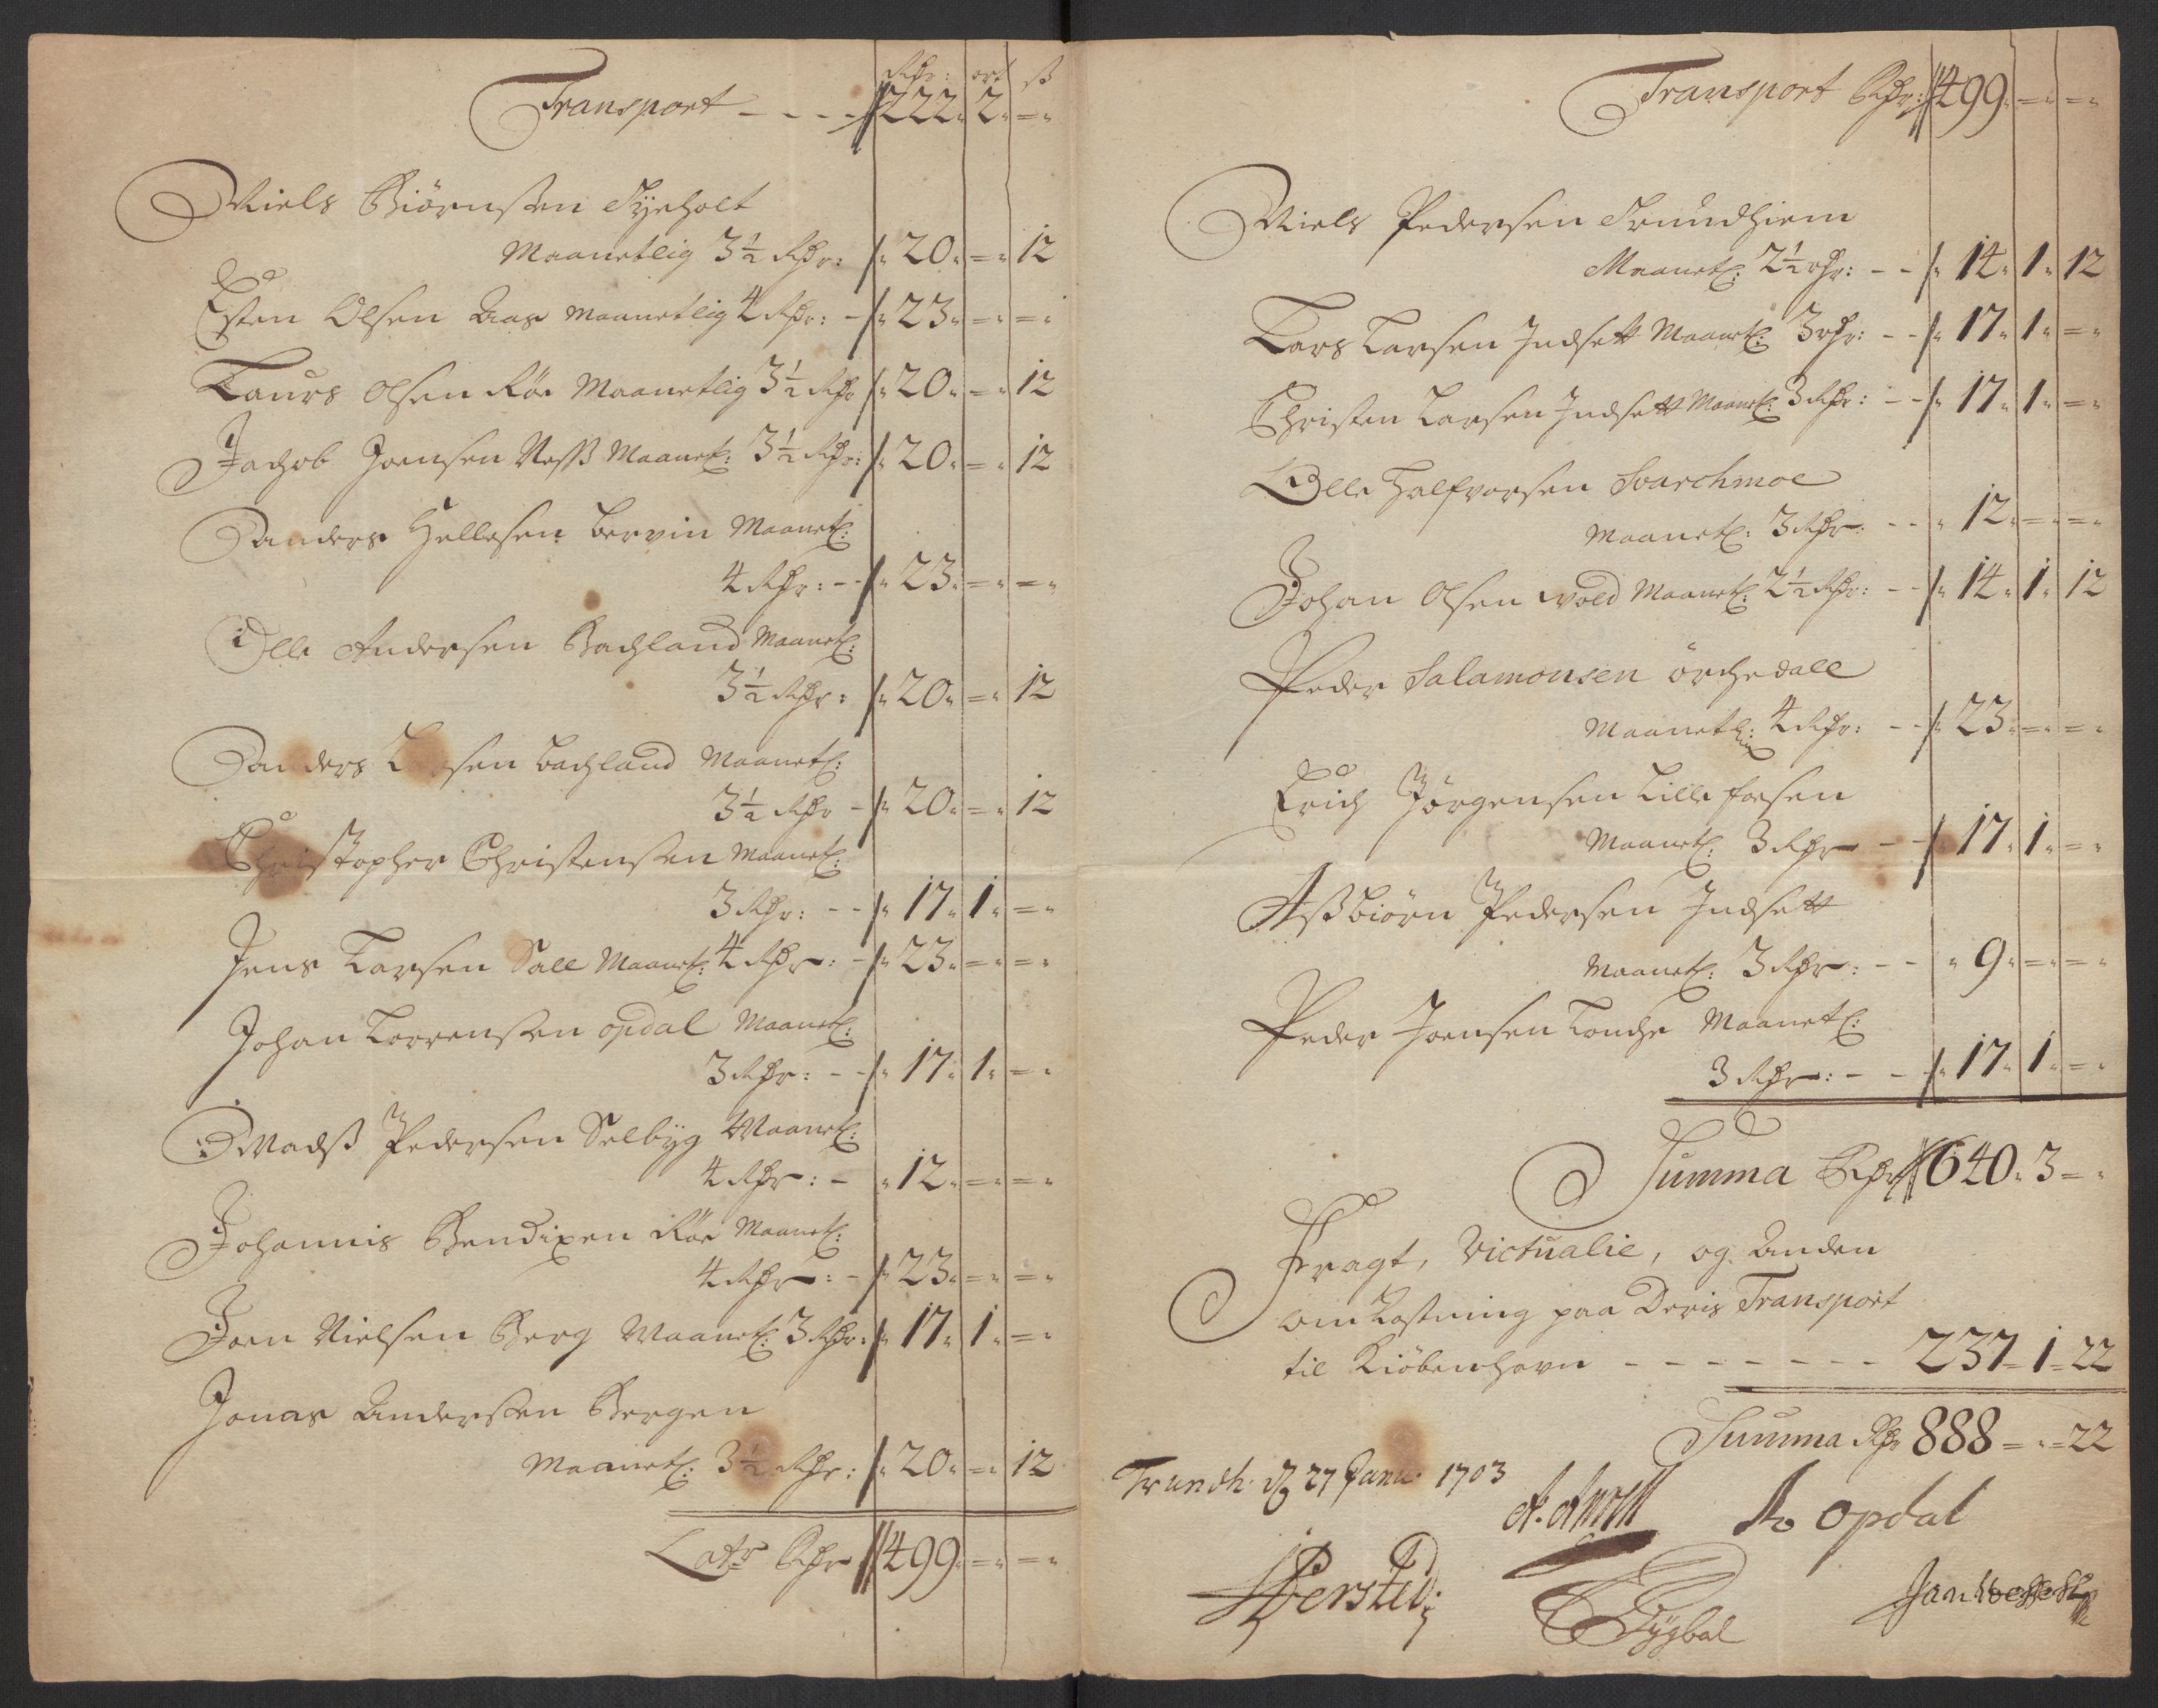 Rdr: ort ß
Transport - - - - 222. 2. =.
Niels Biörnsen Tyeholt
Maanetlig 3½ Rdr: 20. =. 12
Esten Olsen Aas Maanetlig 4 Rdr: - 23. =. =.
Laurs Olsen Röe Maanetlig 3½ Rdr 20. =. 12
Jachob Joensen Næss Maanetl: 3½ Rdr: 20. =. 12
Anders Hellesen Bervin Maanetl:
4 Rdr: - - 23. =. =.
Olle Andersen Bachland Maanetl:
3½ Rdr: 20. =. 12
Anders sen Bachland Maanetl:
3½ Rdr - 20. =. 12
Christopher Christensen Maanetl:
3 Rdr: - - 17. 1. =.
Jens Larsen Sall Maanetl: 4 Rdr: - 23. =. =.
Johan Lorrensen opdal Maanetl:
3 Rdr: - - 17. 1. =.
Madß Pedersen Selbyg Maanetl:
4 Rdr: - 12. =. =.
Johannis Bendixen Röe Maanetl:
4 Rdr: - 23. =. =.
Joen Nielsen Berg Maanetl: 3 Rdr: 17. 1. =.
Jonas Andersen Bergen
Maanetl: 3½ Rdr: 20. =. 12
Latr Rdr 499. =. =.
Transport Rdr: 499. =. =.
Niels Pedersen Trundhiem
Maanetl: 2½ rdr: - - 14. 1. 12
Lars Larsen Indsett Maanetl: 3 rdr: - - 17. 1. =.
Christen Larsen Indsett Maanetl: 3 Rdr: - - 17. 1. =.
Olle Halfvorsen Svarchmoe
Maanetl: 3 Rdr. - - 12. =. =.
Johan Olsen wold Maanetl: 2½ Rdr: - - 14. 1. 12
Peder Salamonsen örchedall
Maanetl: 4 Rdr: - - 23. =. =.
Erich Jörgensen Lille fosen
Maanetl: 3 Rdr - - 17. 1. =.
Aßbiörn Pedersen Indsett
Maanetl: 3 Rdr: - - 9. =. =.
Peder Joensen Lonche Maanetl:
3 Rdr: - - 17. 1. =.
Summa Rdr 640. 3 =.
Fragt, Victualie, og Anden
omkostning paa Deris Transport
til Kiöbenhavn - - - - - - - 237 = 1 = 22
Summa Rdr 888 = . = 22
Trundh: d 27 Janu: 1703
Ao opdal
Tygbal